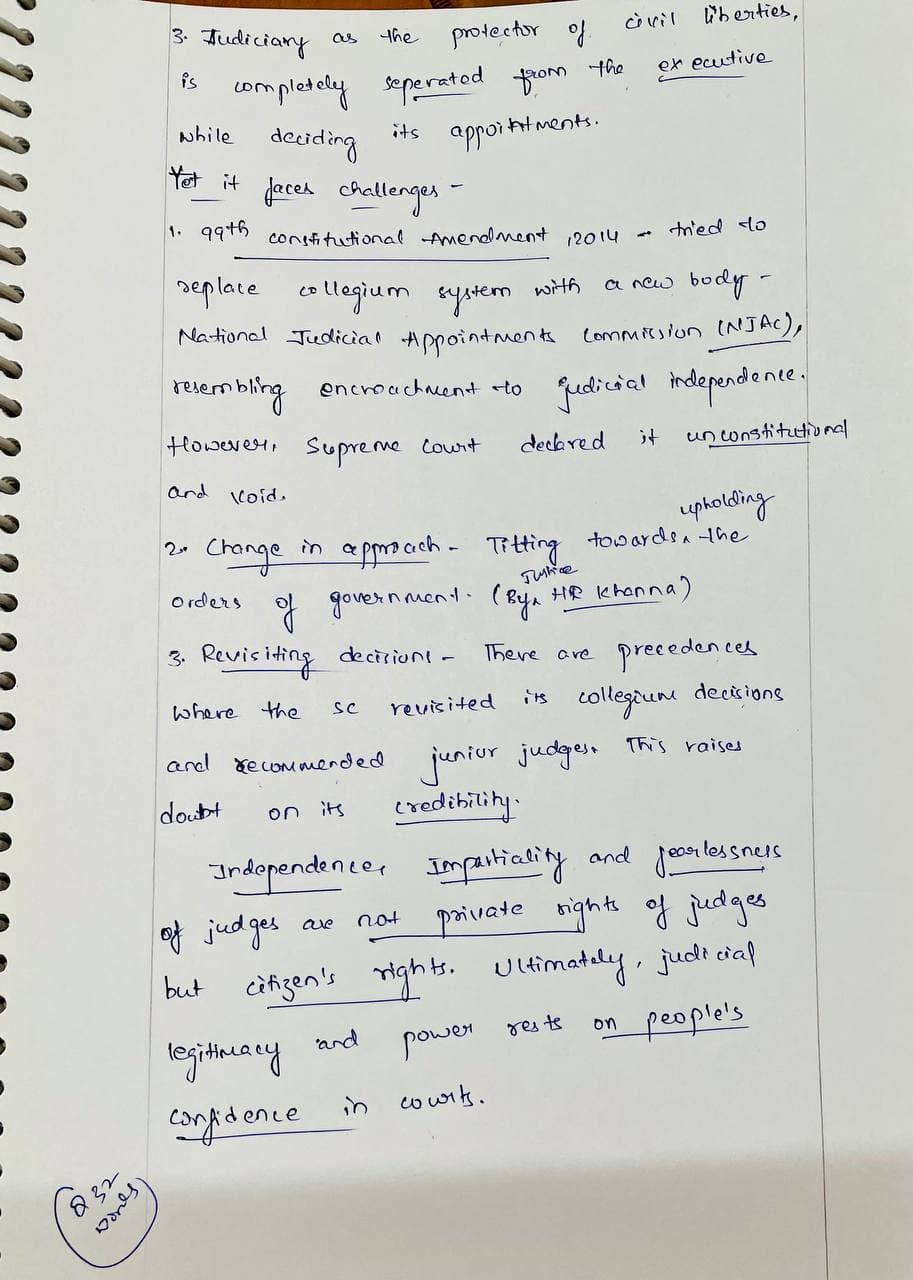 3. Judiciary as the protector of civil liberties,
is completely seperated from the executive
while deciding its appointments.
Yet it faces challenges -
1. 99th constitutional Amendment, 2014 - tried to
replace collegium system with a new body -
National Judicial Appointments Commission (NJAC),
resembling encroachment to judicial independence.
However, Supreme Court declared it unconstitutional
and void.
2. Change in approach - Titting towards upholding the
orders of government. (By Justice HR Khanna)
3. Revisiting decisions - There are precedences
where the SC revisited its collegium decisions
and recommended junior judges. This raises
doubt on its credibility.
Independence, Impartiality and fearlessness
of judges are not private rights of judges
but citizen's rights. Ultimately, judicial
legitimacy and power rests on people's
confidence in courts.
232
words